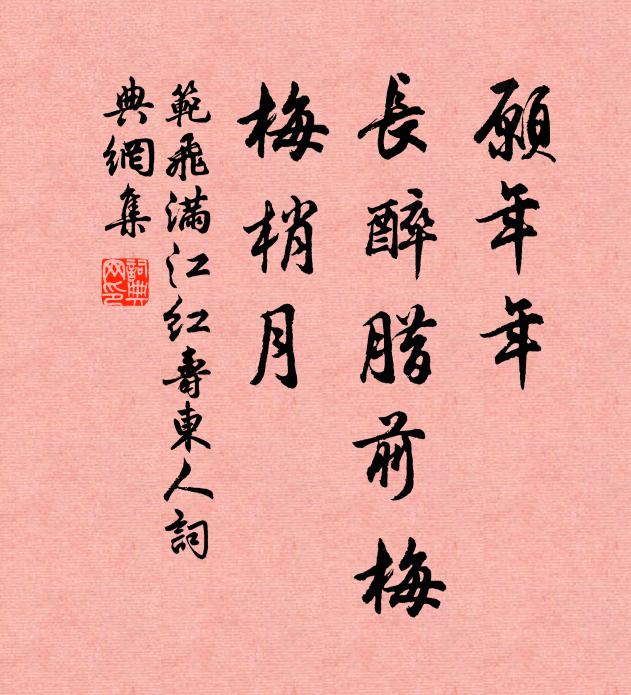 願年年
長醉腊前梅
梅梢月
範飛滿江紅壽東人詞
典網集
詞典
网印